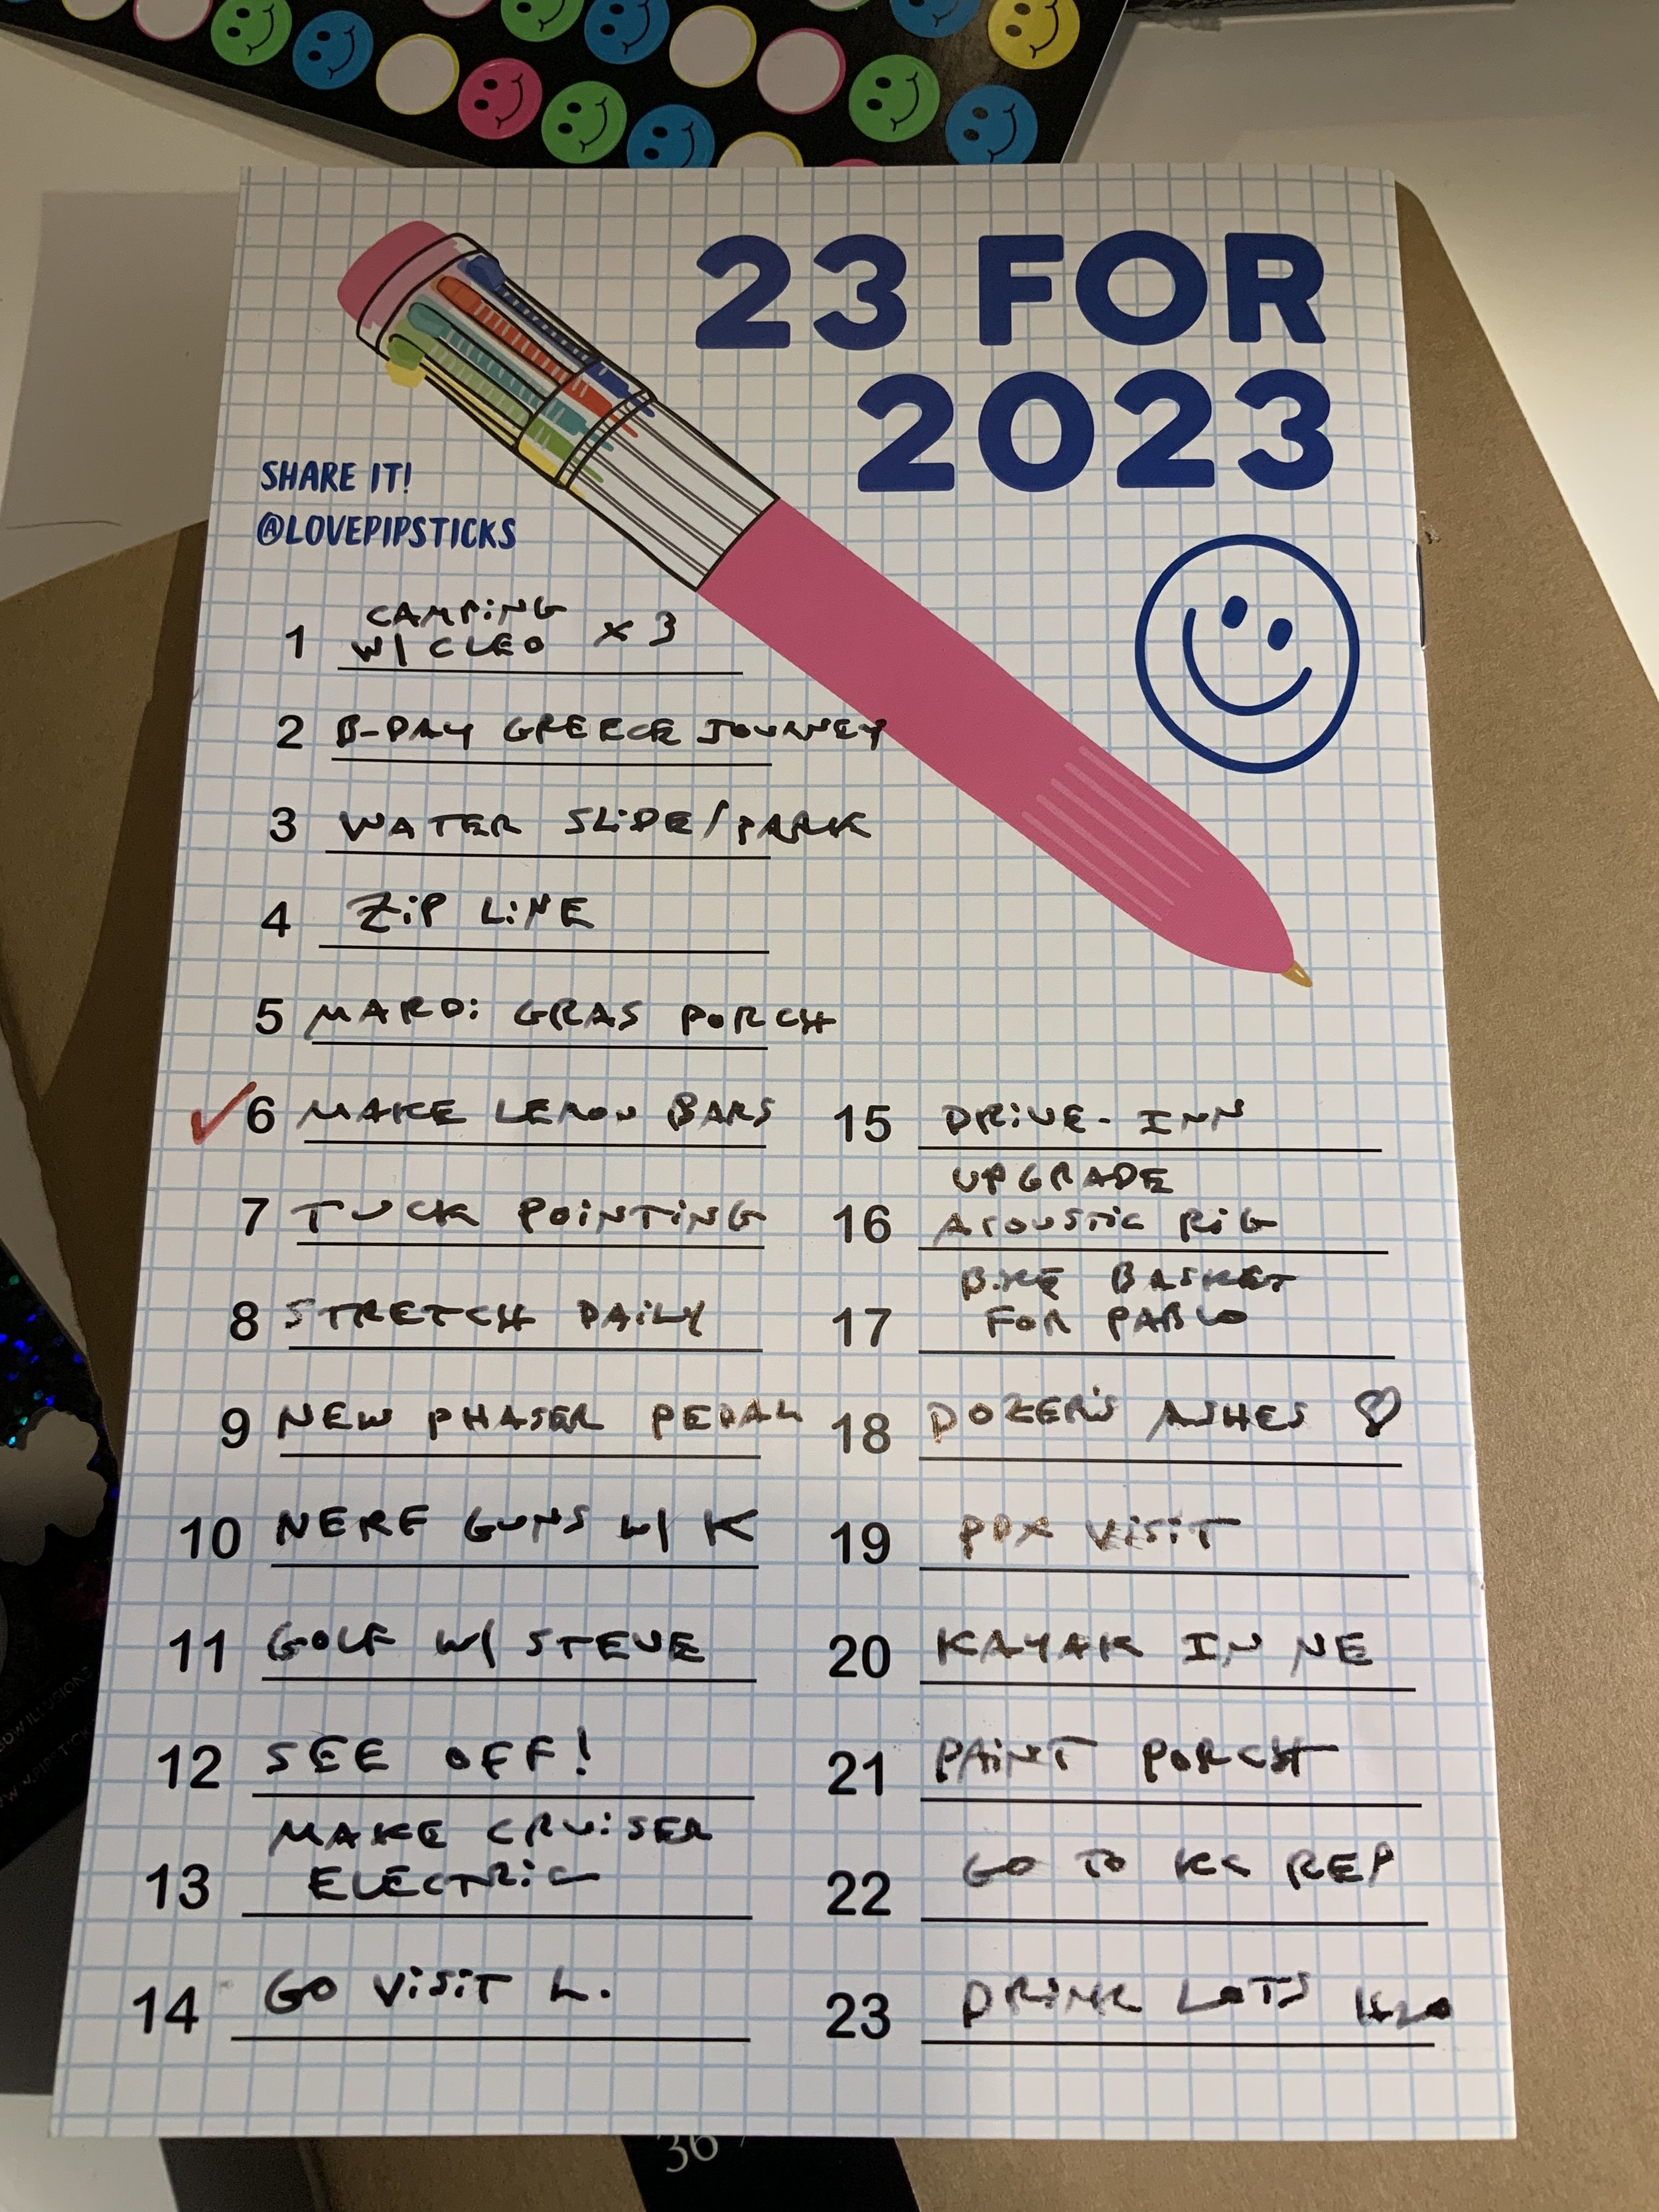 23 FOR
2023
SHARE IT!
@LOVEPIPSTICKS
1 CAMPING
W/ CLEO x 3
2 B-DAY GREECE JOURNEY
3 WATER SLIDE/PARK
4 ZIP LINE
5 MARDI GRAS PORCH
✓6 MAKE LEMON BARS
7 TUCK POINTING
8 STRETCH DAILY
9 NEW PHASER PEDAL
10 NERF GUNS W/ K
11 GOLF W/ STEVE
12 SEE OFF!
13 MAKE CRUISER
ELECTRIC
14 GO VISIT L.
15 DRIVE-INN
16 UPGRADE
ACOUSTIC RIG
17 BIKE BASKET
FOR PABLO
18 DOZER'S ASHES ♡
19 PDX VISIT
20 KAYAK IN NE
21 PAINT PORCH
22 GO TO KC REP
23 DRINK LOTS H2O
36